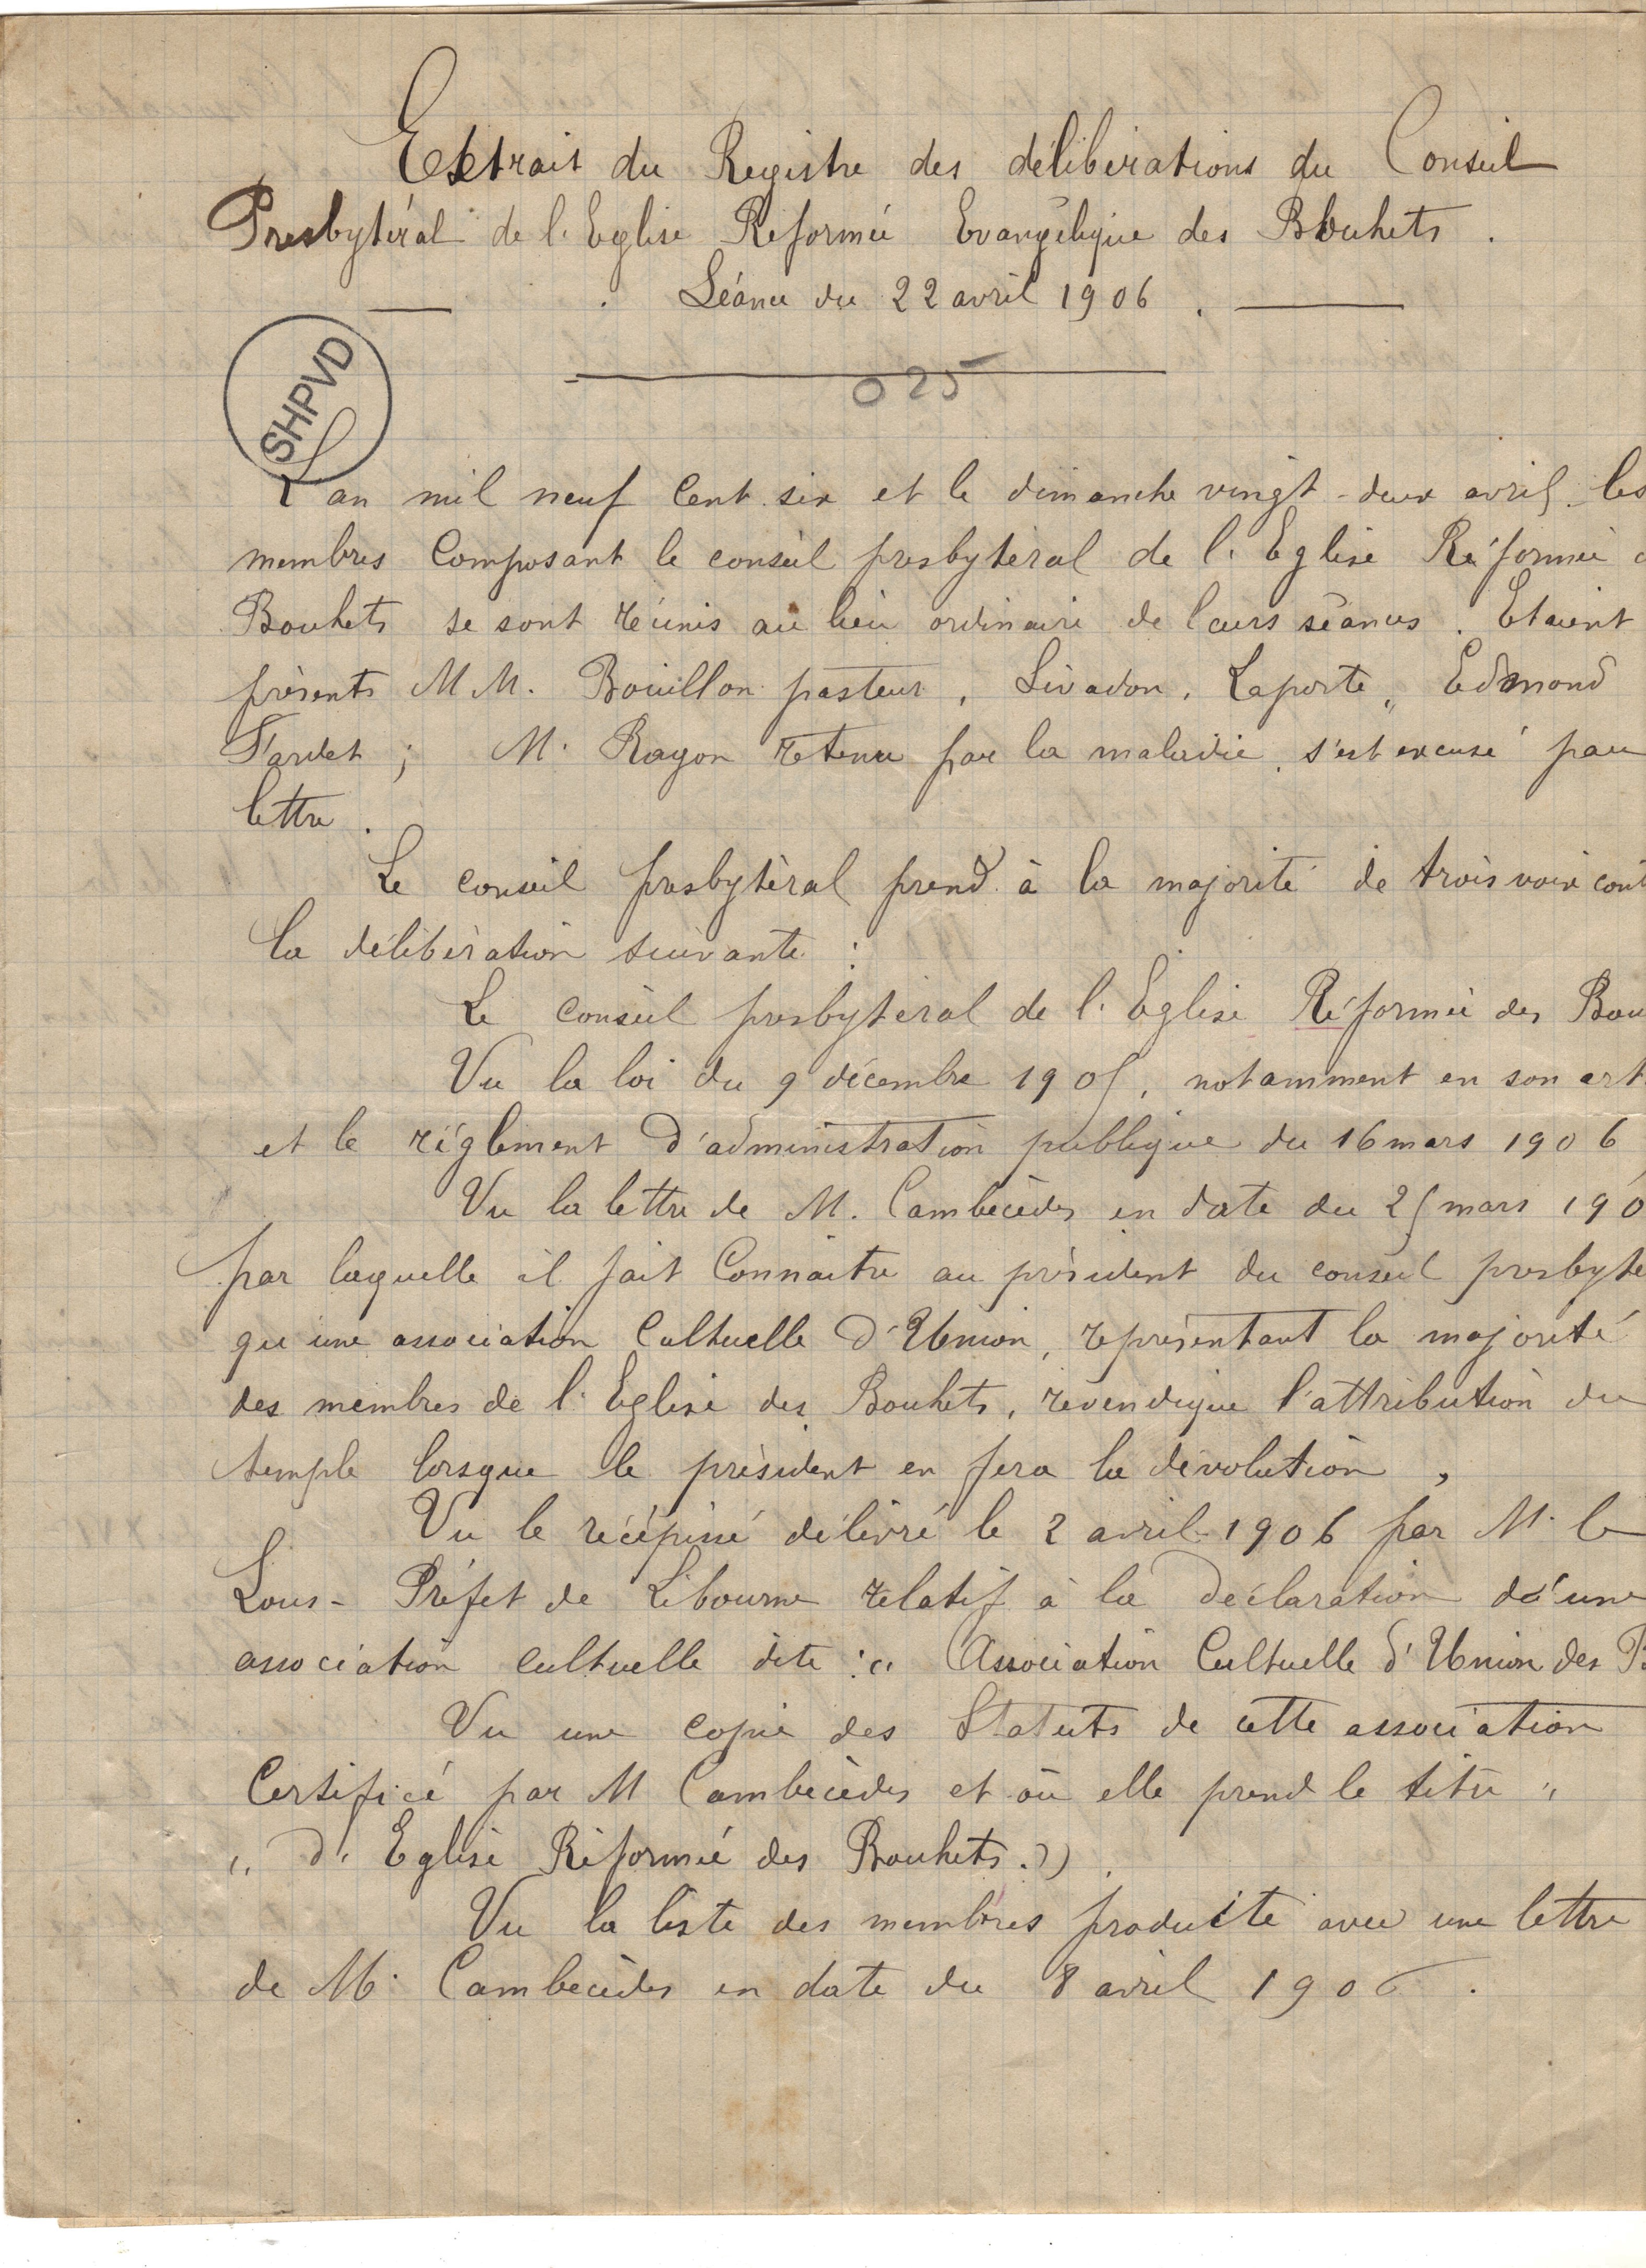 Extrait du Registre des délibérations du Conseil
Presbytéral de l'Eglise Réformée Evangélique des Bouhets.
Séance du 22 avril 1906.
025
SHPVD
L'an mil neuf cent six et le dimanche vingt-deux avril les
membres composant le conseil presbytéral de l'Eglise Réformée
Bouhets se sont réunis au lieu ordinaire de leurs séances. Etaient
présents MM. Bouillon pasteur, Sivadon, Laporte, Edmond
Tardet; M. Rayon retenu par la maladie, s'est excusé par
lettre.
Le conseil presbytéral prend à la majorité de trois voix
la délibération suivante :
Le conseil presbytéral de l'Eglise Réformée des Bou
Vu la loi du 9 décembre 1905, notamment en son art
et le réglement d'administration publique du 16 mars 1906
Vu la lettre de M. Cambécèdes en date du 25 mars 190
par laquelle il fait connaitre au président du conseil presbyté
qu'une association cultuelle d'Union, représentant la majorité
des membres de l'Eglise des Bouhets, revendique l'attribution du
temple lorsque le président en fera la dévolution,
Vu le récépissé délivré le 2 avril 1906 par M. le
Sous-Préfet de Libourne relatif à la déclaration d'une
association cultuelle dite : " Association Cultuelle d'Union des B
Vu une copie des Statuts de cette association
Certifié par M Cambécèdes et où elle prend le titre "
" d'Eglise Réformée des Bouhets. ".
Vu la liste des membres produite avec une lettre
de M. Cambécèdes en date du 8 avril 1906.